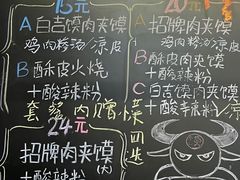 15元
A 白吉馍肉夹馍
鸡肉糁汤/凉皮
B 酥皮火烧
+酸辣粉
套餐内馍菜四选
24元
招牌肉夹馍
(大)
+酸辣粉
20元
A 招牌肉夹馍
鸡肉糁汤/凉皮
B 招牌肉夹馍
+酸辣粉
C 白吉馍肉夹馍
+酸辣粉